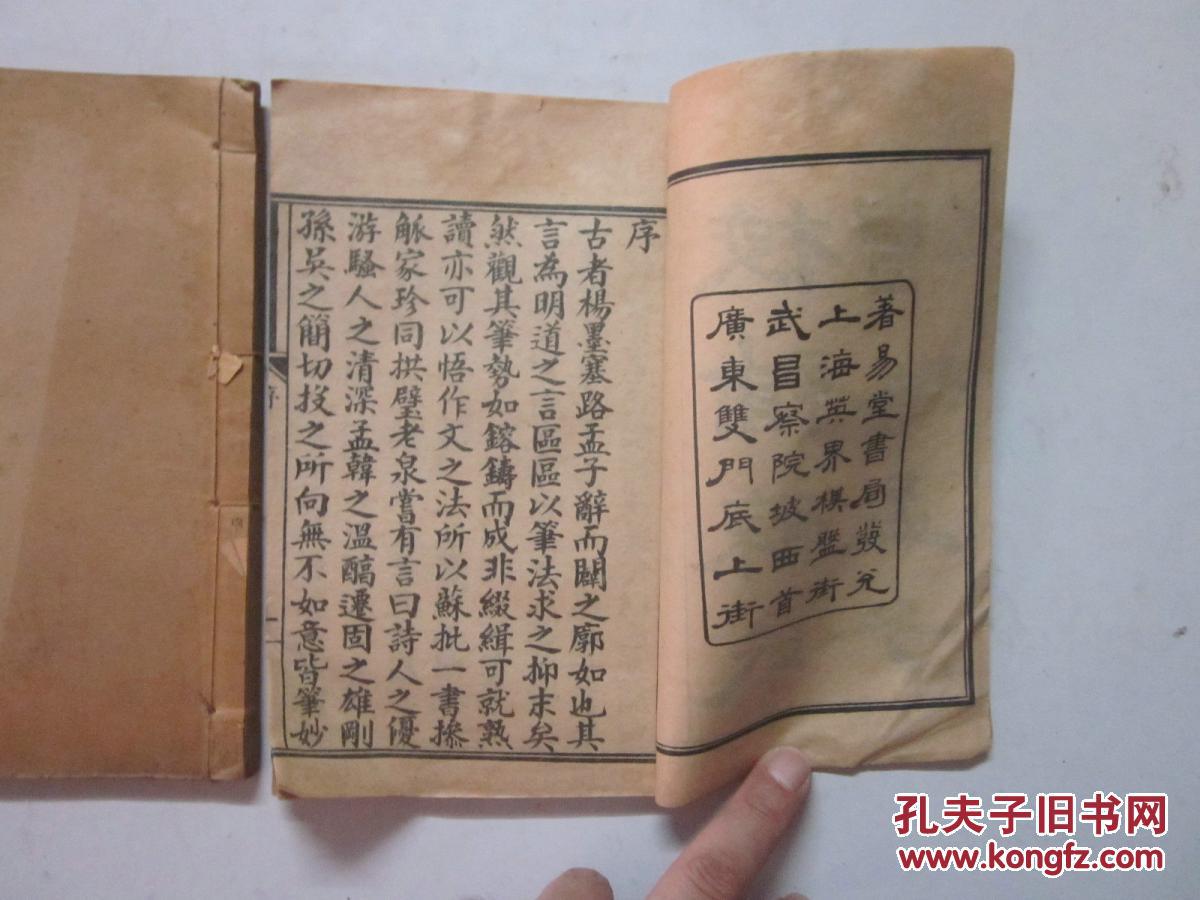 著易堂書局發兌
上海英界棋盤街
武昌察院坡西首
廣東雙門底上街
序
古者楊墨塞路孟子辭而闢之廓如也其
言為明道之言區區以筆法求之抑末矣
然觀其筆勢如鎔鑄而成非綴緝可就熟
讀亦可以悟作文之法所以蘇批一書摻
觚家珍同拱璧老泉嘗有言曰詩人之優
游騷人之清深孟韓之溫醕遷固之雄剛
孫吳之簡切投之所向無不如意皆筆妙
序
孔夫子旧书网
www.kongfz.com